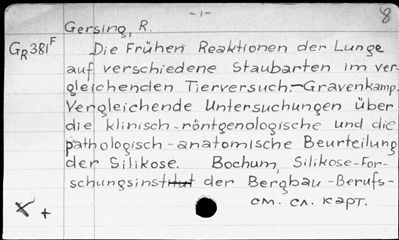 -1- 8
Gersing, R.
GR381F Die Frühen Reaktionen der Lunge
auf verschiedene Staubarten im ver-
gleichenden Tierversuch.-Gravenkamp.
Vergleichende Untersuchungen über
die klinisch-röntgenologische und die
pathologisch-anatomische Beurteilung
der Silikose. Bochum, Silikose-For-
schungsinstitut der Bergbau-Berufs-
+ см. сл. карт.